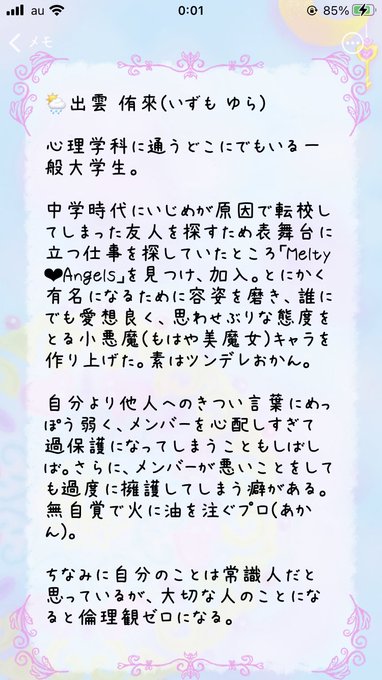 au
0:01
85%
メモ
🌦出雲 侑來(いずも ゆら)
心理学科に通うどこにでもいる一
般大学生。
中学時代にいじめが原因で転校し
てしまった友人を探すため表舞台に
立つ仕事を探していたところ「Melty
❤Angels」を見つけ、加入。とにかく
有名になるために容姿を磨き、誰に
でも愛想良く、思わせぶりな態度を
とる小悪魔(もはや美魔女)キャラを
作り上げた。素はツンデレおかん。
自分より他人へのきつい言葉にめっ
ぽう弱く、メンバーを心配しすぎて
過保護になってしまうこともしばし
ば。さらに、メンバーが悪いことをして
も過度に擁護してしまう癖がある。
無自覚で火に油を注ぐプロ(あか
ん)。
ちなみに自分のことは常識人だと
思っているが、大切な人のことにな
ると倫理観ゼロになる。